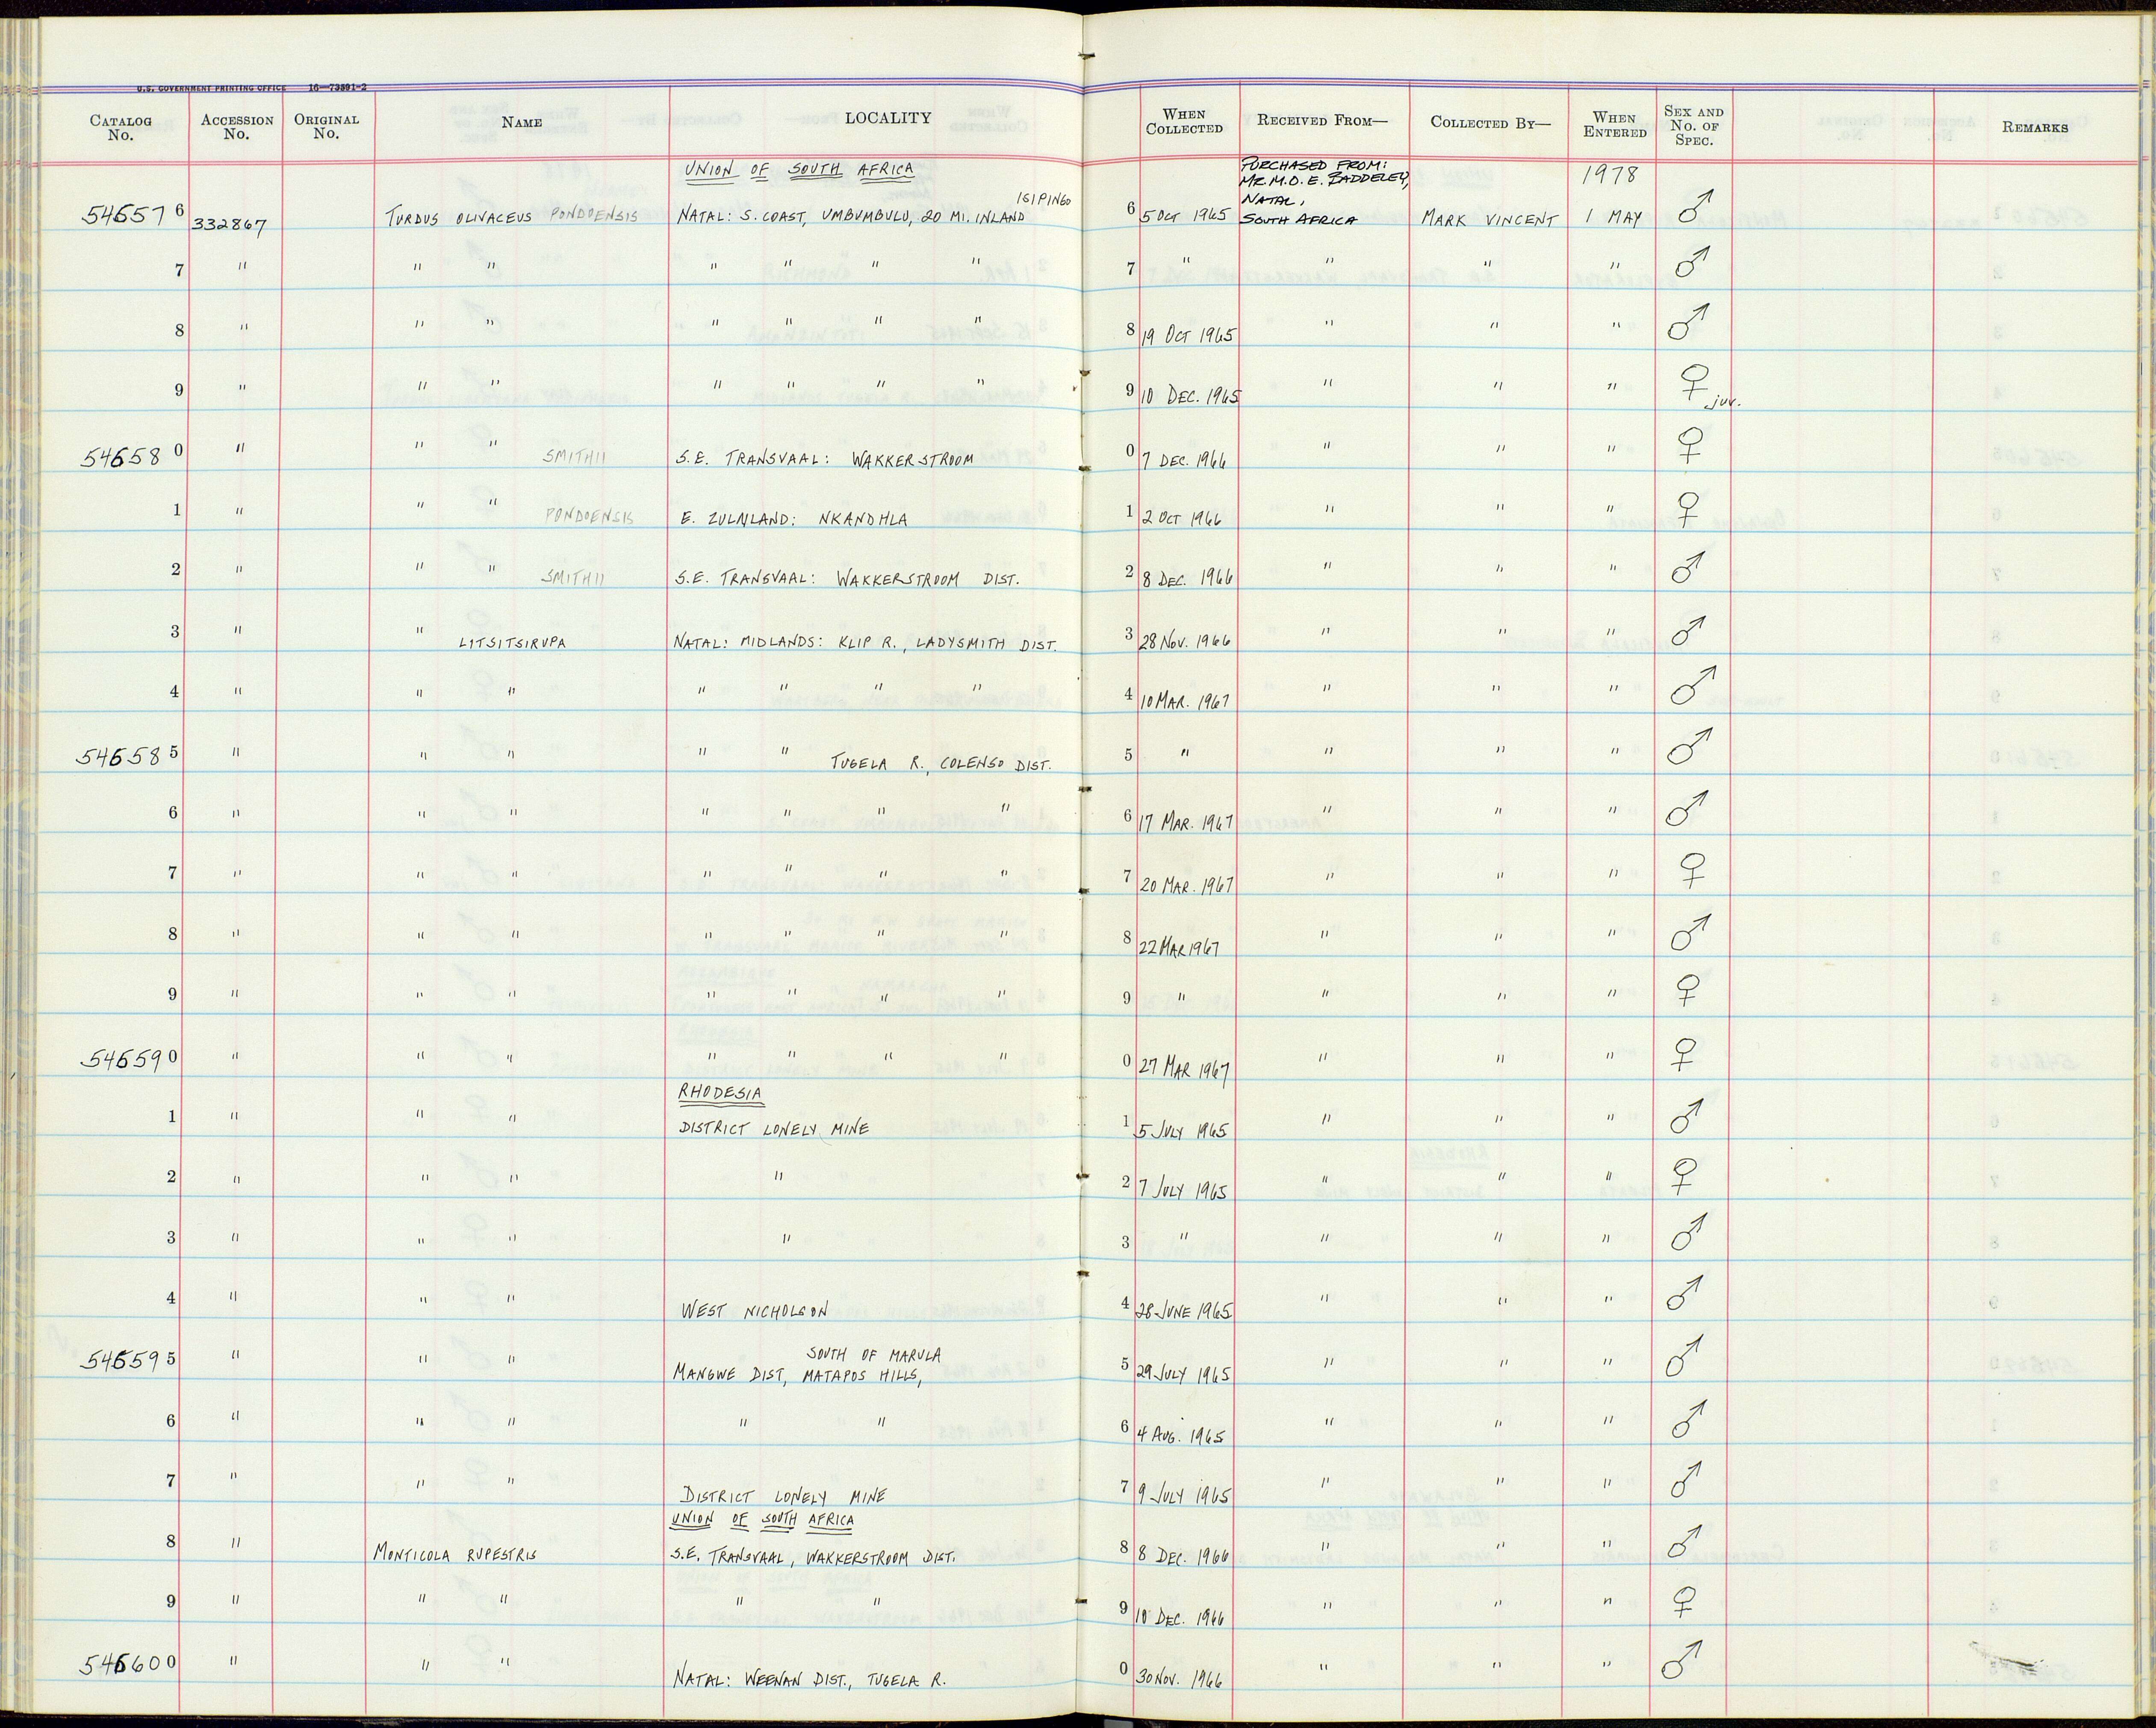 U.S. GOVERNMENT PRINTING OFFICE 16—73891-2
CATALOG No. ACCESSION No. ORIGINAL No. NAME LOCALITY WHEN COLLECTED RECEIVED FROM— COLLECTED BY— WHEN ENTERED SEX AND No. OF SPEC. REMARKS
UNION OF SOUTH AFRICA PURCHASED FROM: MR. M.O.E. BADDELEY, NATAL, SOUTH AFRICA 1978
546576 332867 TURDUS OLIVACEUS PONDOENSIS NATAL: S. COAST, UMBUMBULU, 20 MI. INLAND ISIPINGO 6 5 OCT 1965 MARK VINCENT 1 MAY ♂
7 " " " " " " " 7 " " " " ♂
8 " " " " " " " 8 19 OCT 1965 " " " ♂
9 " " " " " " " 9 10 DEC. 1965 " " " ♀ juv.
546580 " " " SMITHII S.E. TRANSVAAL: WAKKERSTROOM 0 7 DEC. 1966 " " " ♀
1 " " " PONDOENSIS E. ZULULAND: NKANDHLA 1 2 OCT 1966 " " " ♀
2 " " " SMITHII S.E. TRANSVAAL: WAKKERSTROOM DIST. 2 8 DEC. 1966 " " " ♂
3 " " LITSITSIRUPA NATAL: MIDLANDS: KLIP R., LADYSMITH DIST. 3 28 NOV. 1966 " " " ♂
4 " " " " " " " 4 10 MAR. 1967 " " " ♂
546585 " " " " " TUGELA R., COLENSO DIST. 5 " " " " ♂
6 " " " " " " " 6 17 MAR. 1967 " " " ♂
7 " " " " " " " 7 20 MAR. 1967 " " " ♀
8 " " " " " " " 8 22 MAR 1967 " " " ♂
9 " " " " " " " 9 " " " " ♀
546590 " " " " " " " 0 27 MAR 1967 " " " ♀
RHODESIA
1 " " " DISTRICT LONELY MINE 1 5 JULY 1965 " " " ♂
2 " " " " 2 7 JULY 1965 " " " ♀
3 " " " " 3 " " " " ♂
4 " " " WEST NICHOLSON 4 28 JUNE 1965 " " " ♂
546595 " " " MANGWE DIST, MATAPOS HILLS, SOUTH OF MARULA 5 29 JULY 1965 " " " ♂
6 " " " " " 6 4 AUG. 1965 " " " ♂
7 " " " DISTRICT LONELY MINE 7 9 JULY 1965 " " " ♂
UNION OF SOUTH AFRICA
8 " MONTICOLA RUPESTRIS S.E. TRANSVAAL, WAKKERSTROOM DIST. 8 8 DEC. 1966 " " " ♂
9 " " " " " 9 10 DEC. 1966 " " " ♀
546600 " " " NATAL: WEENAN DIST., TUGELA R. 0 30 NOV. 1966 " " " ♂